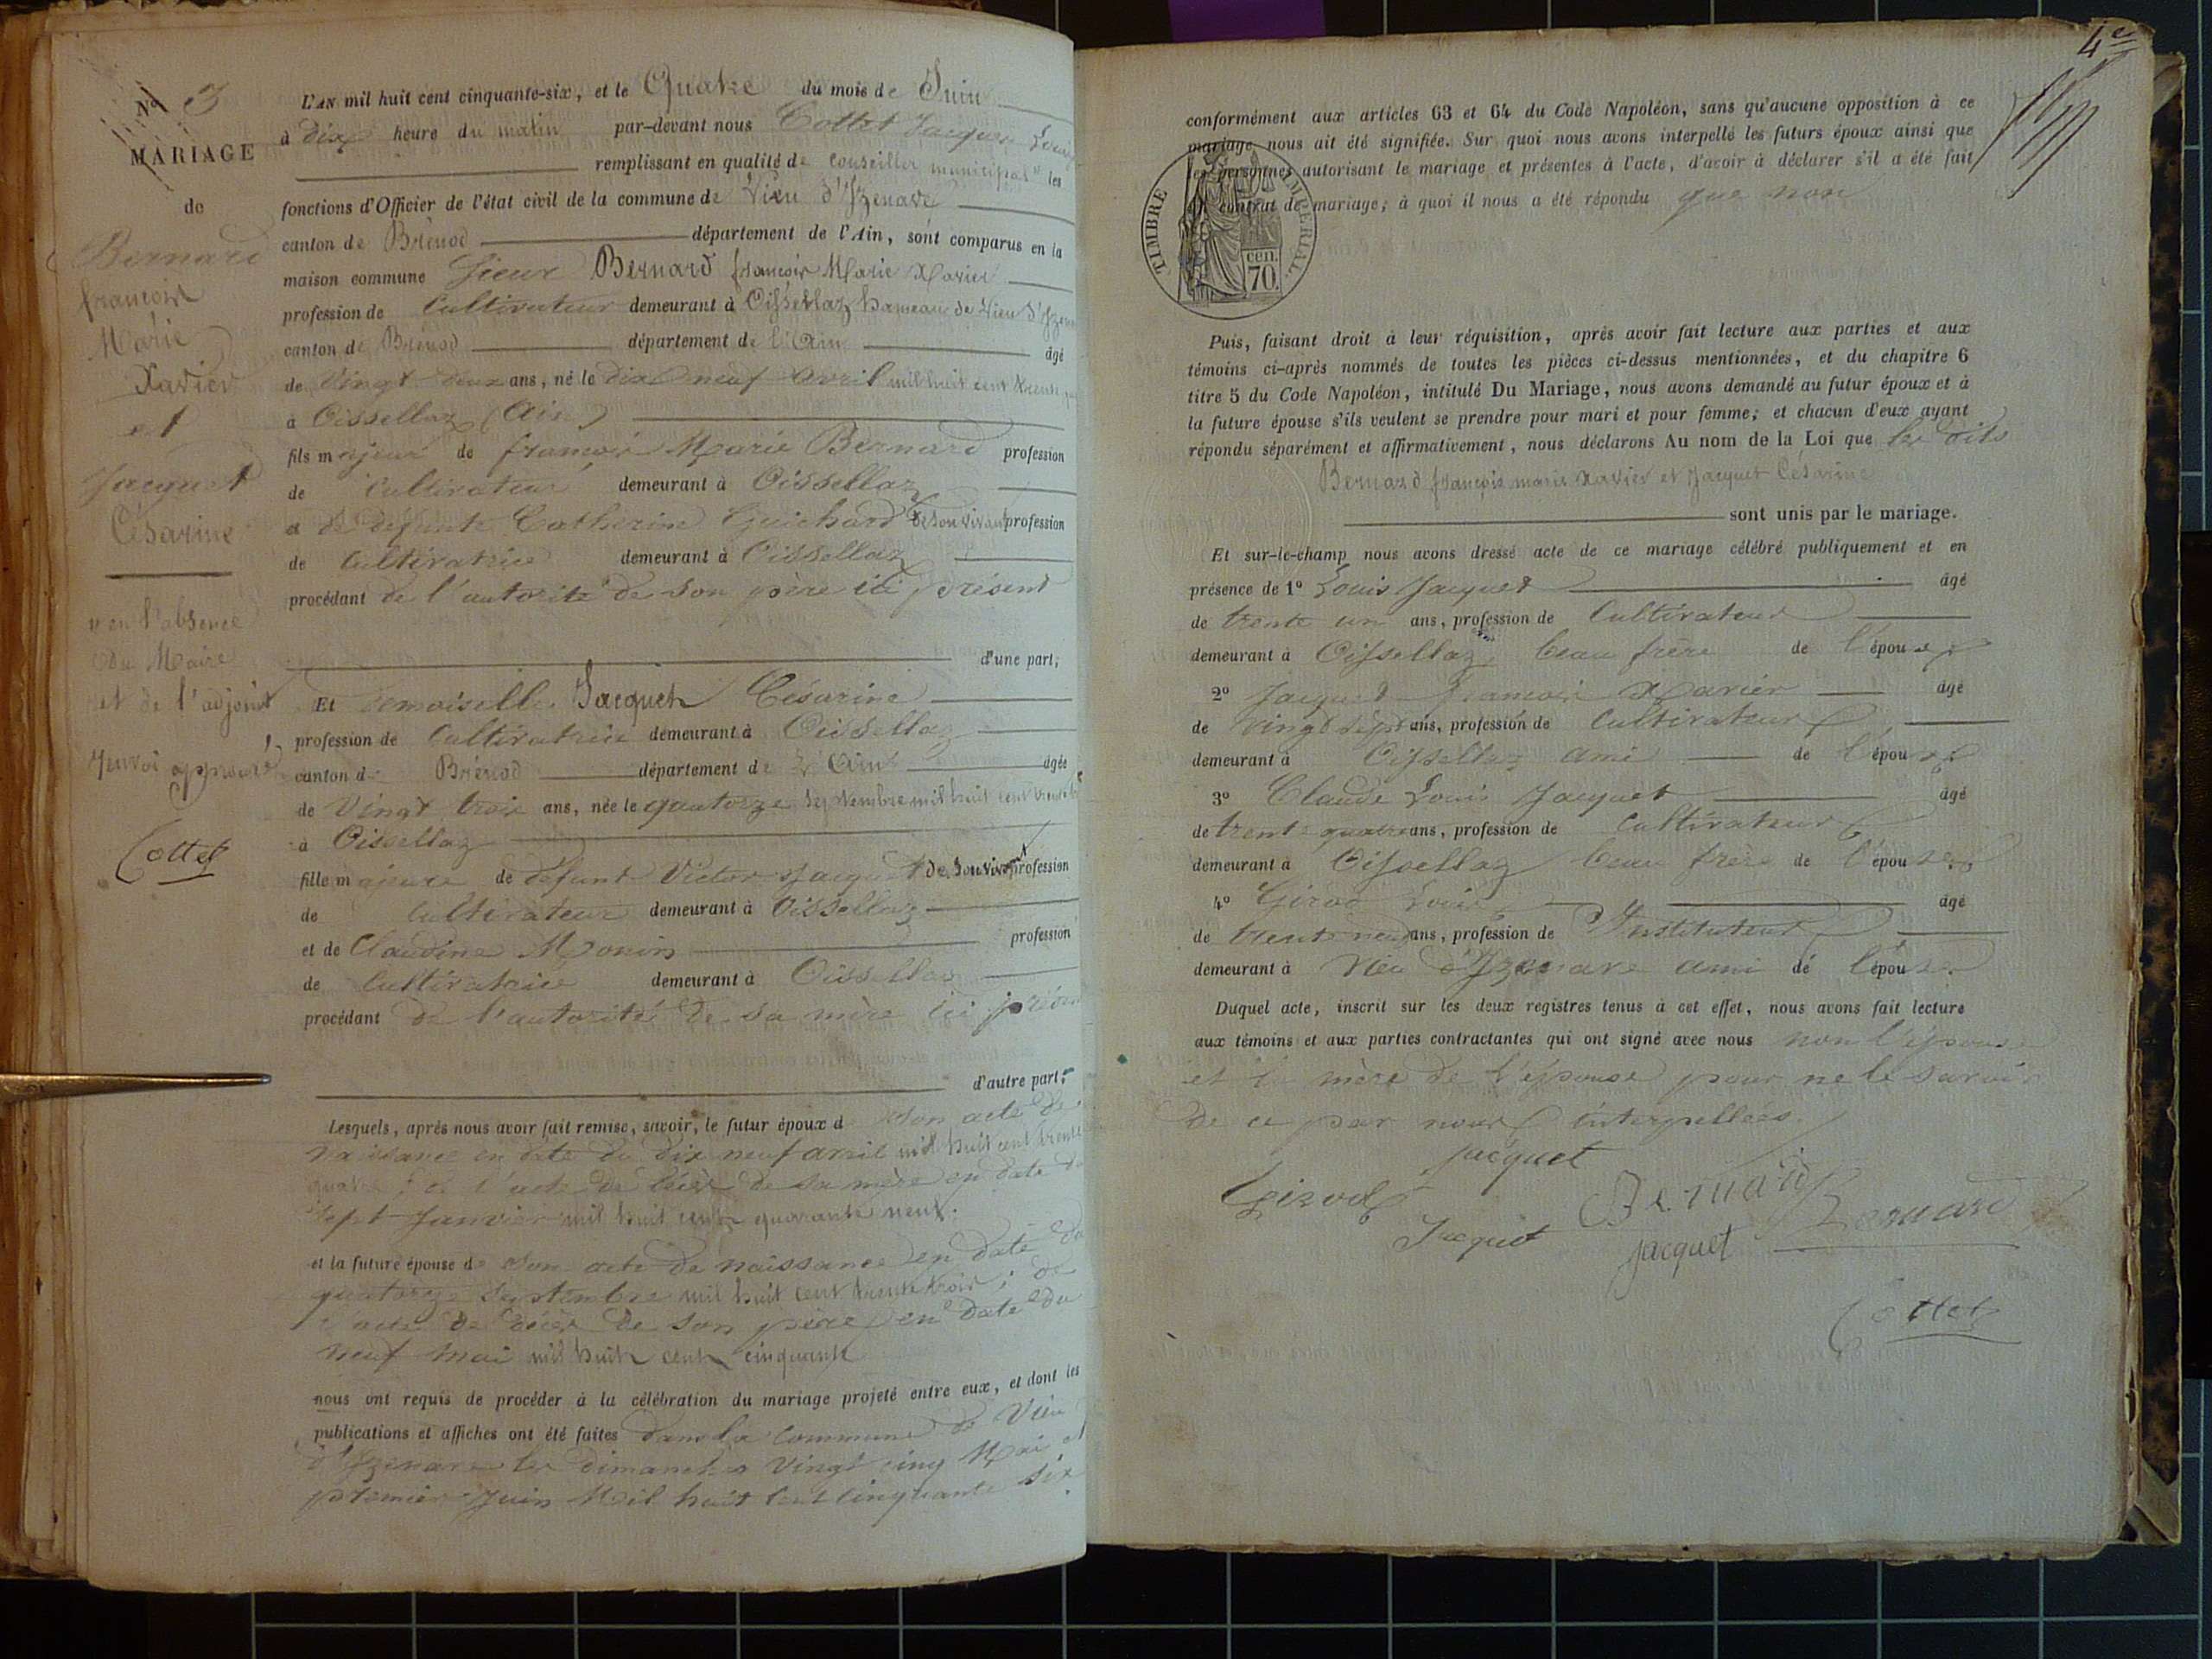 Nº 3
MARIAGE
de
Bernard
françois
Marie
Xavier
et
Jacquet
Césarine
en l'absence
du Maire
et de l'adjoint
renvoi approuvé
Cottet
L'AN mil huit cent cinquante-six, et le Quatre du mois de Juin
à dix heure du matin par-devant nous Cottet Jacques Louis
remplissant en qualité de conseiller municipal les
fonctions d'Officier de l'état civil de la commune de Vieu d'Izenave
canton de Brénod département de l'Ain, sont comparus en la
maison commune Sieur Bernard françois Marie Xavier
profession de Cultivateur demeurant à Oissellaz hameau de Vieu d'Izen
canton de Brénod département de l'Ain âgé
de vingt deux ans, né le dix neuf avril mil huit cent trente
à Oissellaz (Ain)
fils majeur de françois Marie Bernard profession
de Cultivateur demeurant à Oissellaz
et de défunte Catherine Guichard de son vivant profession
de Cultivatrice demeurant à Oissellaz
procédant de l'autorité de son père ici présent
d'une part;
Et demoiselle Jacquet Césarine
profession de Cultivatrice demeurant à Oissellaz
canton de Brénod département de l'Ain âgée
de Vingt trois ans, née le quatorze septembre mil huit cent trente
à Oissellaz
fille majeure de défunt Victor Jacquet de son vivant profession
de Cultivateur demeurant à Oissellaz
et de Claudine Monin profession
de Cultivatrice demeurant à Oissellaz
procédant de l'autorité de sa mère ici présen
d'autre part;
Lesquels, après nous avoir fait remise, savoir, le futur époux d son acte de
naissance en date du dix neuf avril mil huit cent trente
quatre; de l'acte de décès de sa mère en date du
sept Janvier mil huit cent quarante neuf.
et la future épouse de son acte de naissance en date du
quatorze septembre mil huit cent trente trois; de
l'acte de décès de son père en date du
neuf mai mil huit cent cinquante
nous ont requis de procéder à la célébration du mariage projeté entre eux, et dont les
publications et affiches ont été faites dans la commune de Vieu
d'Izenave les dimanches vingt cinq Mai et
premier Juin Mil huit cent cinquante six.
4e
conformément aux articles 63 et 64 du Code Napoléon, sans qu'aucune opposition à ce
mariage nous ait été signifiée. Sur quoi nous avons interpellé les futurs époux ainsi que
les personnes autorisant le mariage et présentes à l'acte, d'avoir à déclarer s'il a été fait
un contrat de mariage; à quoi il nous a été répondu que non
TIMBRE IMPÉRIAL.
cen.
70.
Puis, faisant droit à leur réquisition, après avoir fait lecture aux parties et aux
témoins ci-après nommés de toutes les pièces ci-dessus mentionnées, et du chapitre 6
titre 5 du Code Napoléon, intitulé Du Mariage, nous avons demandé au futur époux et à
la future épouse s'ils veulent se prendre pour mari et pour femme; et chacun d'eux ayant
répondu séparément et affirmativement, nous déclarons Au nom de la Loi que les dits
Bernard françois marie Xavier et Jacquet Césarine
sont unis par le mariage.
Et sur-le-champ nous avons dressé acte de ce mariage célébré publiquement et en
présence de 1º Louis Jacquet âgé
de trente un ans, profession de Cultivateur
demeurant à Oissellaz, beau frère de l'épouse
2º Jacquet françois Xavier âgé
de vingt sept ans, profession de Cultivateur
demeurant à Oissellaz ami de l'épouse
3º Claude Louis Jacquet âgé
de trente quatre ans, profession de Cultivateur
demeurant à Oissellaz beau frère de l'épouse
4º Girod Louis âgé
de trente neuf ans, profession de Instituteur
demeurant à Vieu d'Izenave ami de l'épouse
Duquel acte, inscrit sur les deux registres tenus à cet effet, nous avons fait lecture
aux témoins et aux parties contractantes qui ont signé avec nous non l'épouse
et la mère de l'épouse pour ne le savoir
de ce par nous interpellées.
jacquet
Girod Bernard Bernard
Jacquet jacquet
Cottet